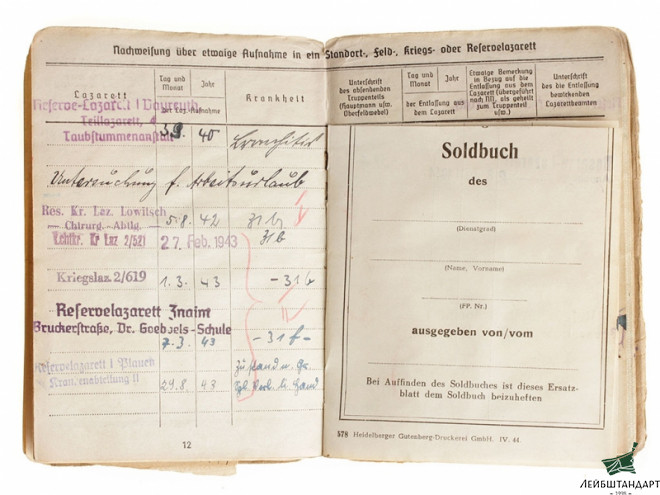 Nachweisung über etwaige Aufnahme in ein Standort-, Feld-, Kriegs- oder Reservelazarett
Lazarett
Tag und Monat
Jahr
der Laz.-Aufnahme
Krankheit
Reserve-Lazarett I Bayreuth
Teillazarett, 4
Taubstummenanstalt
3.9. 40 Bronchitis
Untersuchung f. Arbeitsurlaub
Res. Kr. Laz. Lowitsch
Chirurg. Abtlg.
5.8. 42 31 b
Leichtkr. Kr Laz 2/521
27. Feb. 1943 31 b
Kriegslaz. 2/619 1.3. 43 – 31 b
Reservelazarett Znaim
Bruckerstraße, Dr. Goebbels-Schule
7.3. 43
Reservelazarett I Plauen
Krankenabteilung II
29.8. 43
12
Unterschrift des absendenden Truppenteils (Hauptmann usw. Oberfeldwebel)
Tag und Monat
Jahr
der Entlassung aus dem Lazarett
Etwaige Bemerkung in Bezug auf die Entlassung aus dem Lazarett (übergeführt nach NN, als geheilt zum Truppenteil usw.)
Unterschrift des die Entlassung bewirkenden Lazarettbeamten
Soldbuch
des
(Dienstgrad)
(Name, Vorname)
(FP. Nr.)
ausgegeben von/vom
Bei Auffinden des Soldbuches ist dieses Ersatz-
blatt dem Soldbuch beizuheften
578 Heidelberger Gutenberg-Druckerei GmbH. IV. 44.
ЛЕЙБШТАНДАРТ
1998